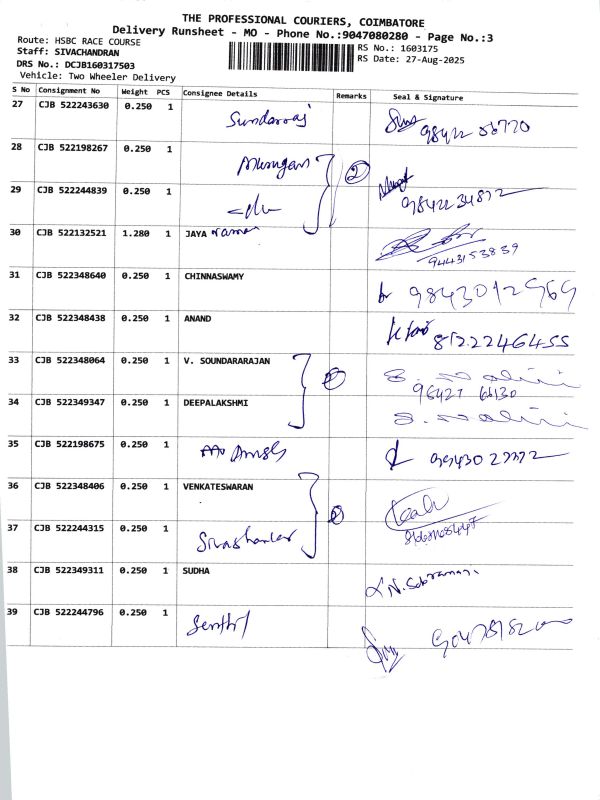 THE PROFESSIONAL COURIERS, COIMBATORE
Delivery Runsheet - MO - Phone No.:9047080280 - Page No.:3
Route: HSBC RACE COURSE
Staff: SIVACHANDRAN
DRS No.: DCJB160317503
Vehicle: Two Wheeler Delivery
RS No.: 1603175
RS Date: 27-Aug-2025
S No Consignment No Weight PCS Consignee Details Remarks Seal & Signature
27 CJB 522243630 0.250 1 Sundarraj
28 CJB 522198267 0.250 1 Murugan 2
29 CJB 522244839 0.250 1
30 CJB 522132521 1.280 1 JAYA raman 9443153839
31 CJB 522348640 0.250 1 CHINNASWAMY 9843012969
32 CJB 522348438 0.250 1 ANAND
33 CJB 522348064 0.250 1 V. SOUNDARARAJAN
34 CJB 522349347 0.250 1 DEEPALAKSHMI
35 CJB 522198675 0.250 1
36 CJB 522348406 0.250 1 VENKATESWARAN
37 CJB 522244315 0.250 1 Sivashankar
38 CJB 522349311 0.250 1 SUDHA
39 CJB 522244796 0.250 1 Senthil